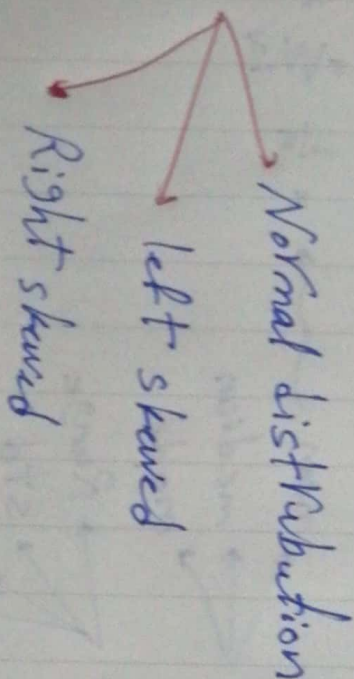 Normal distribution
left skewed
Right skewed